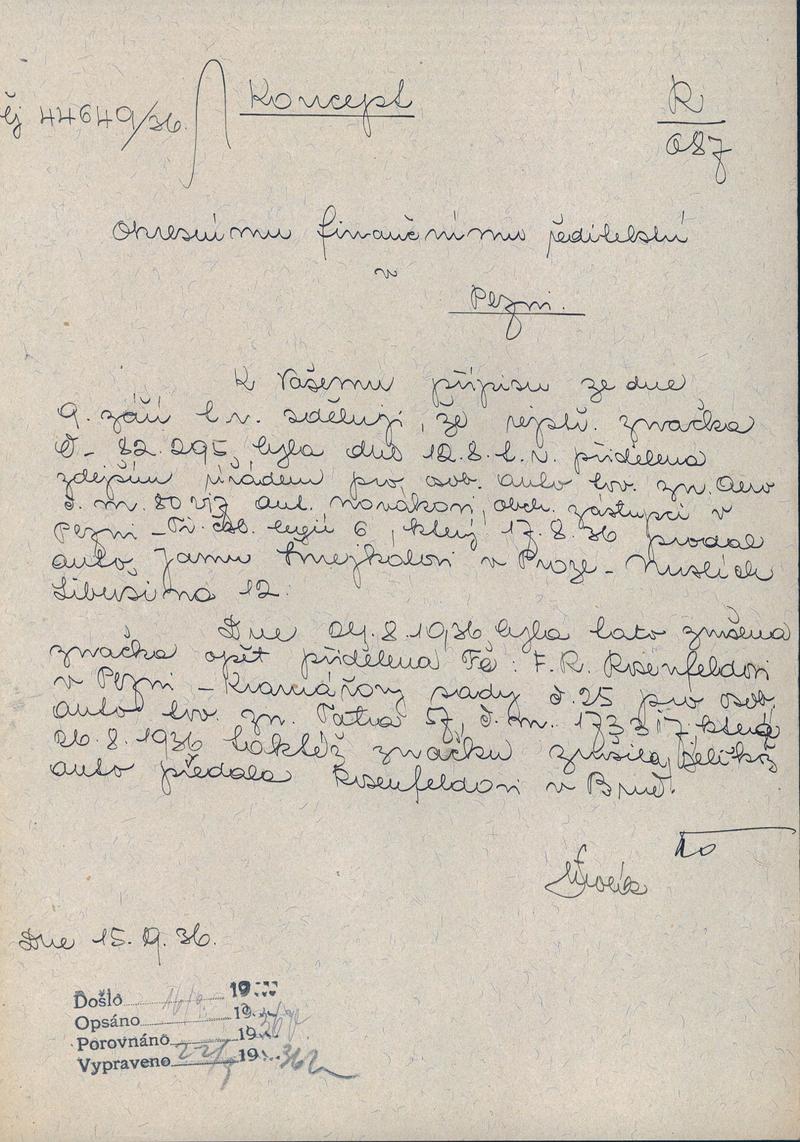 čj 44649/36. Koncept R
087
Okresnímu finančnímu ředitelství
v
Plzni.
K Vašemu přípisu ze dne
9. září t.r. sděluji, že rejstř. značka
Č - 82.295 byla dne 12.8.t.r. přidělena
zdejším úřadem pro osob. auto tov. zn. Aero
č. m. Ant. Novákovi, obch. zástupci v
Plzni - Tř. čsl. legií 6, který 17.8.36 prodal
auto Janu Šmejkalovi v Praze - Nuslích
Libušina 12.
Dne 24.8.1936 byla tato zrušená
značka opět přidělena Fě: F.R. Rosenfeldovi
v Plzni - Kramářovy sady č. 25 pro osob.
auto tov. zn. Tatra 57, č. m. 173317, která
26.8.1936 taktéž značku zrušila, jelikož
auto předala Rosenfeldovi v Brně.
Dne 15.9.36.
Došlo 16/9. 19
Opsáno 19
Porovnáno 19
Vypraveno 22/9 19 36